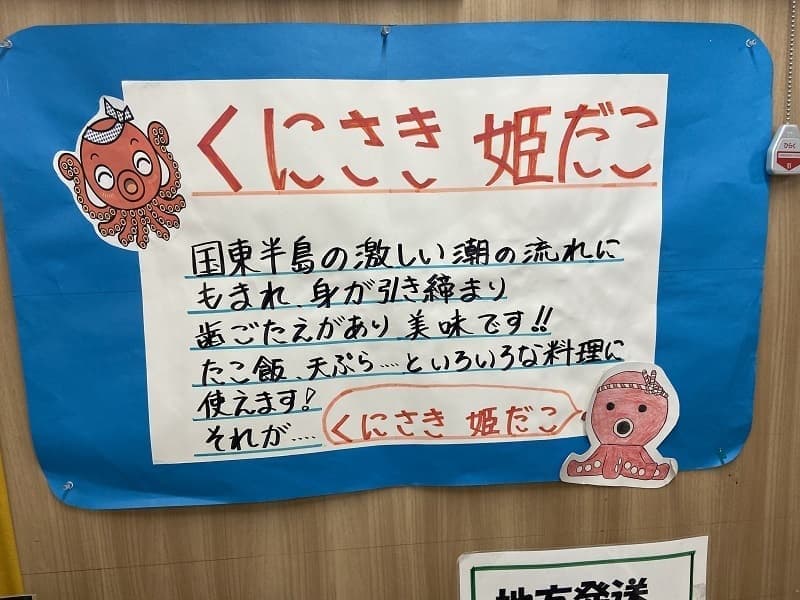 くにさき 姫だこ
国東半島の激しい潮の流れに
もまれ、身が引き締まり
歯ごたえがあり 美味です!!
たこ飯、天ぷら…といろいろな料理に
使えます!
それが…. くにさき 姫だこ
ひらく
地方発送